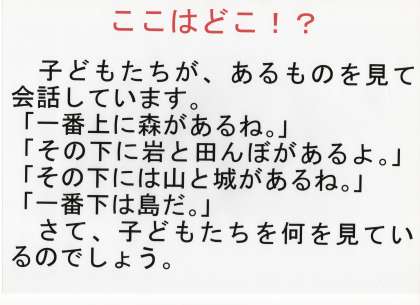 ここはどこ！？
子どもたちが、あるものを見て
会話しています。
「一番上に森があるね。」
「その下に岩と田んぼがあるよ。」
「その下には山と城があるね。」
「一番下は島だ。」
さて、子どもたちを何を見てい
るのでしょう。